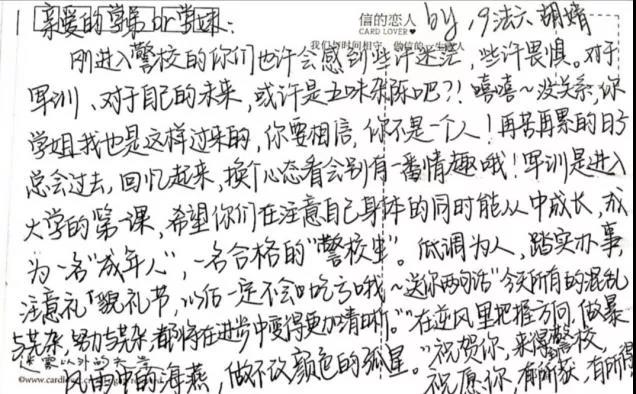 亲爱的学弟or学妹:
信的恋人 by,19法六 胡婧
CARD LOVER♥
我们与时间相守 做信的一生恋人
刚进入警校的你们也许会感到些许迷茫,些许畏惧。对于
军训、对于自己的未来,或许是五味杂陈吧?!嘻嘻~没关系,你
学姐我也是这样过来的,你要相信,你不是一个人!再苦再累的日子
总会过去,回忆起来,换个心态看会别有一番情趣哦!军训是进入
大学的第一课,希望你们在注意自己身体的同时能从中成长,成
为一名"成年人",一名合格的"警校生"。低调为人,踏实办事,
注意礼貌礼节,以后一定不会吃亏哦~送你两句话"今天所有的混乱
与芜杂,努力与芜杂都将在进步中变得更加清晰。""在逆风里把握方向,做暴
风雨中的海燕,做不改颜色的孤星。"祝贺你,来得警校,
祝愿你,有所获,有所得
©www.cardlover.